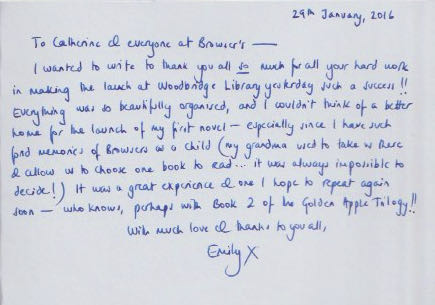 29th January, 2016
To Catherine & everyone at Browser's —
I wanted to write to thank you all so much for all your hard work
in making the launch at Woodbridge Library yesterday such a success!!
Everything was so beautifully organised, and I couldn't think of a better
home for the launch of my first novel — especially since I have such
fond memories of Browsers as a child (my grandma used to take us there
& allow us to choose one book to read... it was always impossible to
decide!) It was a great experience & one I hope to repeat again
soon — who knows, perhaps with Book 2 of the Golden Apple Trilogy!!
With much love & thanks to you all,
Emily X